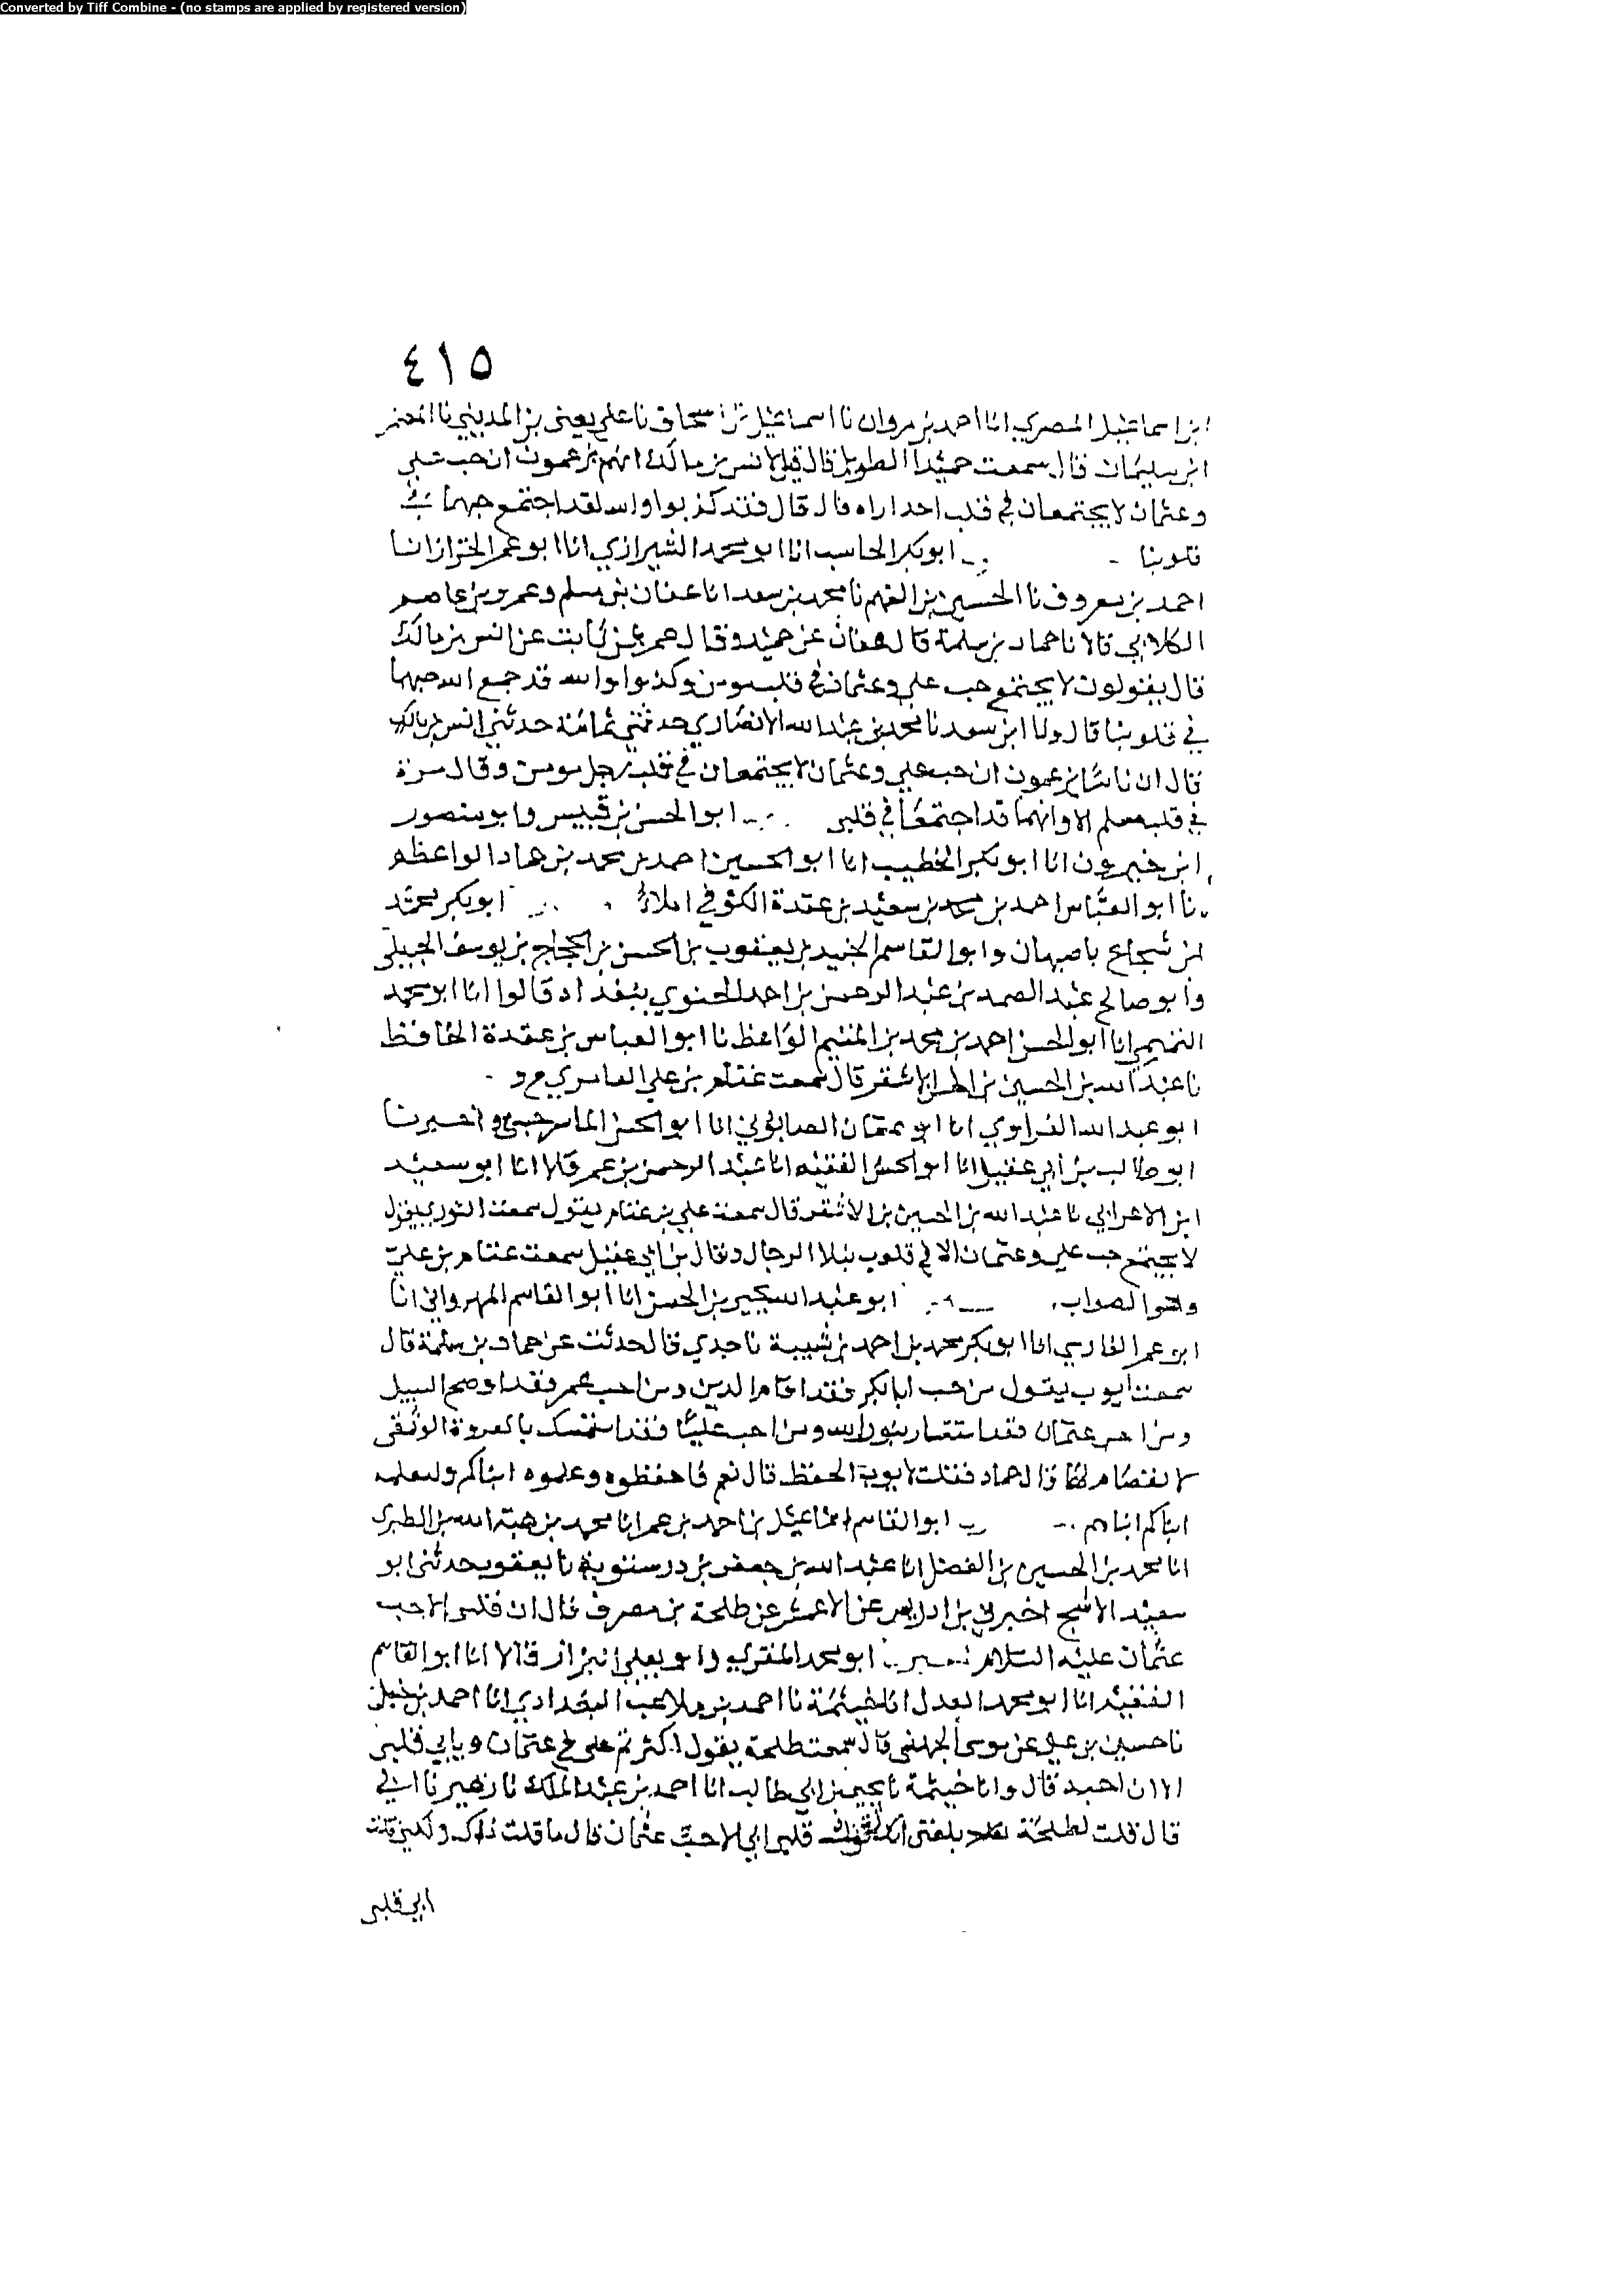 Converted by Tiff Combine - (no stamps are applied by registered version)
٤١٥
ابن اسماعيل المصري انا احمد بن مروان نا اسماعيل بن اسحاق نا علي يعني بن المديني نا المعتمر
ابن سليمان قال سمعت حميدا الطويل قال قيل لانس بن مالك انهم يزعمون ان حب علي
وعثمان لا يجتمعان في قلب احد اراه قال قال فقد كذبوا والله لقد اجتمع حبهما في
قلوبنا ابو بكر الحاسب انا ابو محمد الشيرازي انا ابو عمر الخزاز انا
احمد بن معروف نا الحسين بن الفهم نا محمد بن سعد انا عفان بن مسلم وعمرو بن عاصم
الكلابي قالا نا حماد بن سلمة قال عفان عن حميد وقال عمرو عن ثابت عن انس بن مالك
قال يقولون لا يجتمع حب علي وعثمان في قلب مومن وكذبوا والله قد جمع الله حبهما
في قلوبنا قال وانا ابن سعد نا محمد بن عبد الله الانصاري حدثني ثمامة حدثني انس بن مالك
قال ان ناسا يزعمون ان حب علي وعثمان لا يجتمعان في قلب رجل مومن وقال مرة
في قلب مسلم الا وانهما قد اجتمعا في قلبي ابو الحسن بن قبيس وابو منصور
ابن خيرون انا ابو بكر الخطيب انا ابو الحسين احمد بن محمد بن حماد الواعظ
نا ابو العباس احمد بن محمد بن سعيد بن عقدة الكوفي املاءً ابو بكر محمد
ابن شجاع باصبهان وابو القاسم الجنيد بن يعقوب بن الحسن بن الحجاج بن يوسف الجيلي
وابو صالح عبد الصمد بن عبد الرحمن بن احمد الحنوي ببغداد قالوا انا ابو محمد
التميمي انا ابو الحسن احمد بن محمد بن المتيم الواعظ نا ابو العباس بن عقدة الحافظ
نا عبد الله بن الحسين بن الحسن الاشقر قال سمعت عثام بن علي العامري ح و
ابو عبد الله الفراوي انا ابو عثمان الصابوني انا ابو الحسن الماسرجسي واخبرنا
ابو طالب بن ابي عقيل انا ابو الحسن الفقيه انا عبد الرحمن بن عمر قالا انا ابو سعيد
ابن الاعرابي نا عبد الله بن الحسين بن الاشقر قال سمعت علي بن عثام يقول سمعت الثوري يقول
لا يجتمع حب علي وعثمان الا في قلوب نبلاء الرجال وقال بن ابي عقيل سمعت عثام بن علي
وهو الصواب ابو عبد الله بن الحسن انا ابو القاسم المهرواني انا
ابو عمر الفارسي انا ابو بكر محمد بن احمد بن شيبة نا جدي قال حدثت عن حماد بن سلمة قال
سمعت ايوب يقول من احب ابا بكر فقد اقام الدين ومن احب عمر فقد اوضح السبيل
ومن احب عثمان فقد استنار بنور الله ومن احب عليًا فقد استمسك بالعروة الوثقى
لا انفصام لها قال حماد فقلت لايوب الحفظ قال نعم فاحفظوه وعلموه ابناكم وليعلمه
ابناكم ابناهم ابو القاسم اسماعيل بن احمد بن عمر انا محمد بن هبة الله بن الطبري
انا محمد بن الحسين بن الفضل انا عبد الله بن جعفر بن درستويه نا يعقوب حدثني ابو
سعيد الاشج اخبرني بن ادريس عن الاعمش عن طلحة بن مصرف قال ان قلبي لاحب
عثمان عليه السلام ابو محمد المقري وابو يعلى البزاز قالا انا ابو القاسم
الفقيه انا ابو محمد العدل انا خيثمة نا احمد بن ملاعب البغدادي انا احمد بن حنبل
نا حسين بن علي عن موسى الجهني قال سمعت طلحة يقول اكثرتم علي في عثمان ويابى قلبي
الا ان احبه قال وانا خيثمة نا يحيى بن ابي طالب انا احمد بن عبد الملك نا زهير نا
قال قلت لطلحة بلغني انك تقول قلبي ابى الا حب عثمان قال ما قلت ذاك ولكني قلت
ابي قلبي